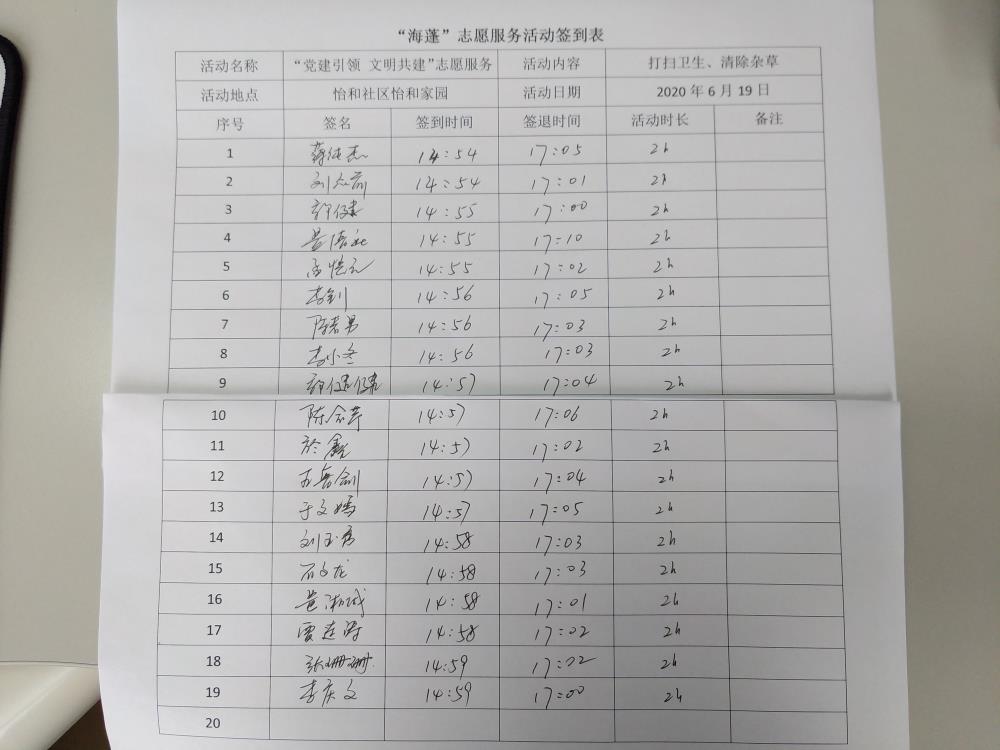 “海蓬”志愿服务活动签到表
活动名称 “党建引领 文明共建”志愿服务 活动内容 打扫卫生、清除杂草
活动地点 怡和社区怡和家园 活动日期 2020 年 6 月 19 日
序号 签名 签到时间 签退时间 活动时长 备注
1 14:54 17:05 2h
2 14:54 17:01 2h
3 14:55 17:00 2h
4 14:55 17:10 2h
5 14:55 17:02 2h
6 李钊 14:56 17:05 2h
7 14:56 17:03 2h
8 李小冬 14:56 17:03 2h
9 14:57 17:04 2h
10 14:57 17:06 2h
11 於鑫 14:57 17:02 2h
12 14:57 17:04 2h
13 于文嫣 14:57 17:05 2h
14 14:58 17:03 2h
15 石文龙 14:58 17:03 2h
16 14:58 17:01 2h
17 14:58 17:02 2h
18 张姗姗 14:59 17:02 2h
19 李庆文 14:59 17:00 2h
20